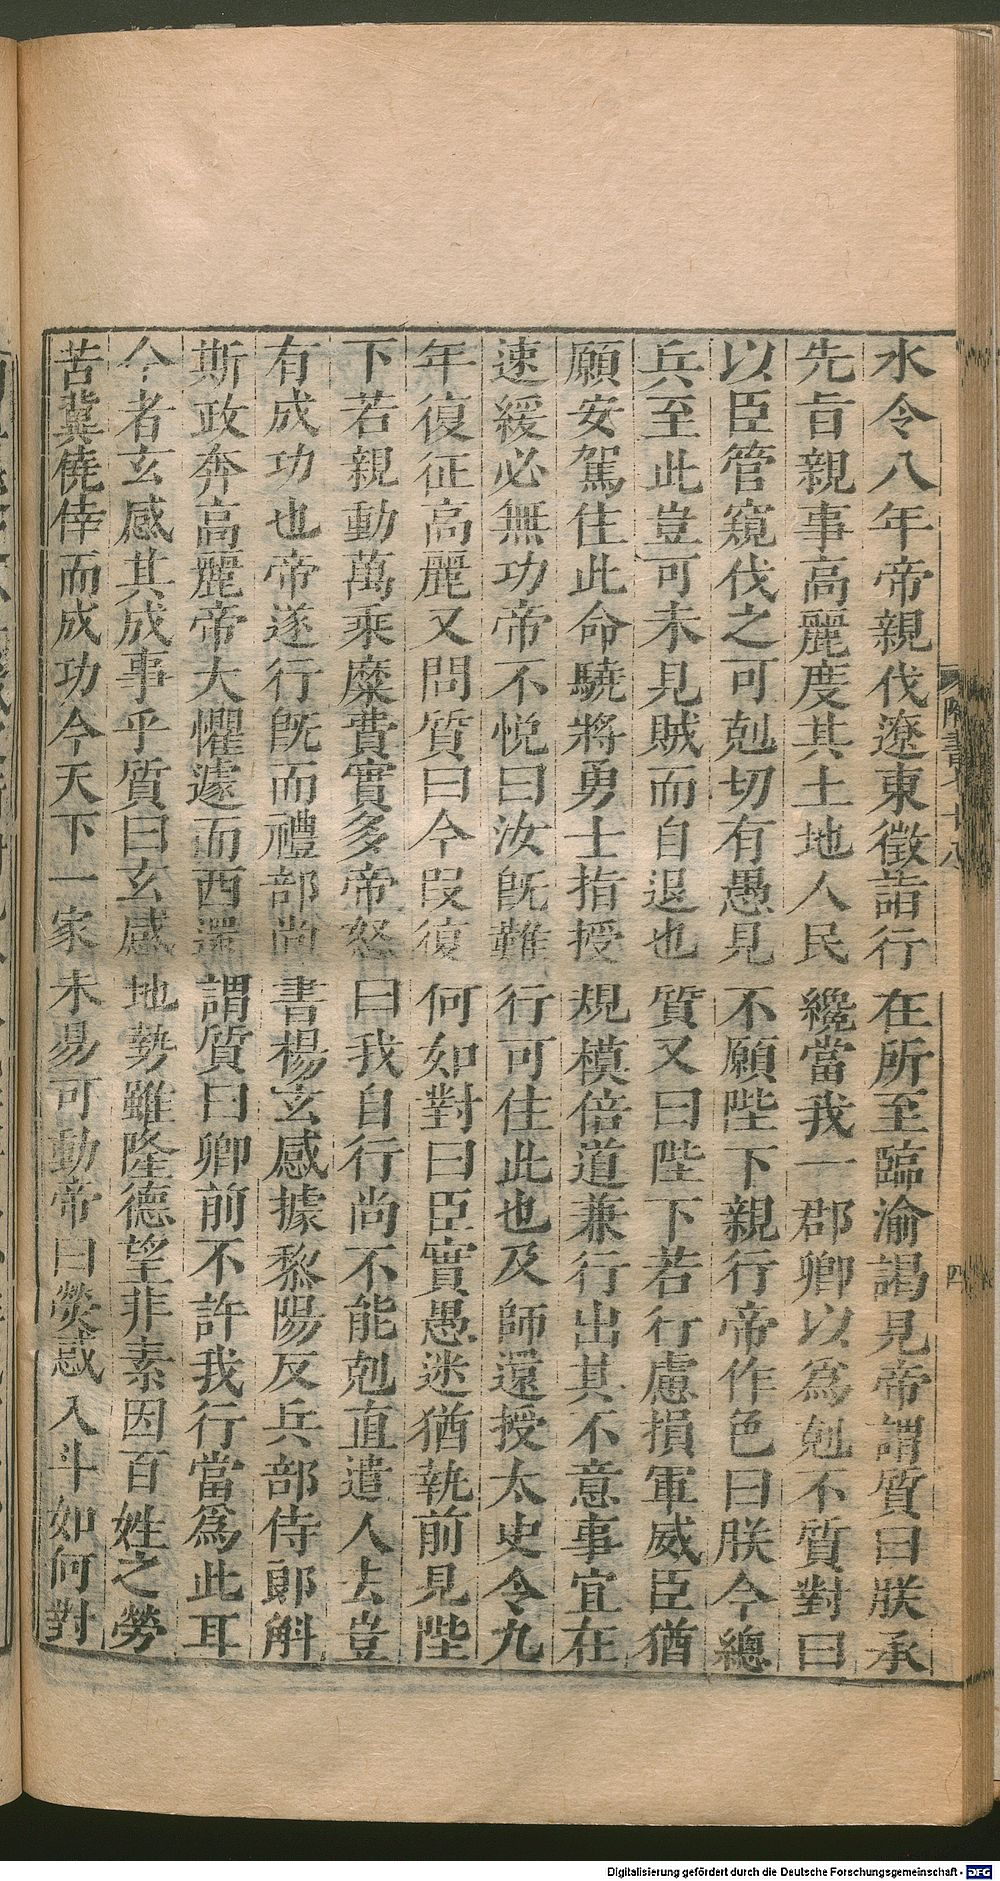 水令八年帝親伐遼東徵詣行在所至臨渝謁見帝謂質曰朕承
先旨親事高麗度其土地人民纔當我一郡卿以爲剋不質對曰
以臣管窺伐之可剋切有愚見不願陛下親行帝作色曰朕今總
兵至此豈可未見賊而自退也質又曰陛下若行慮損軍威臣猶
願安駕住此命驍將勇士指授規模倍道兼行出其不意事宜在
速緩必無功帝不悅曰汝旣難行可住此也及師還授太史令九
年復征高麗又問質曰今叚復何如對曰臣實愚迷猶執前見陛
下若親動萬乘糜費實多帝怒曰我自行尚不能剋直遣人去豈
有成功也帝遂行旣而禮部尚書楊玄感據黎陽反兵部侍郎斛
斯政奔高麗帝大懼遽而西還謂質曰卿前不許我行當爲此耳
今者玄感其成事乎質曰玄感地勢雖隆德望非素因百姓之勞
苦冀僥倖而成功今天下一家未易可動帝曰熒惑入斗如何對
四
Digitalisierung gefördert durch die Deutsche Forschungsgemeinschaft - DFG